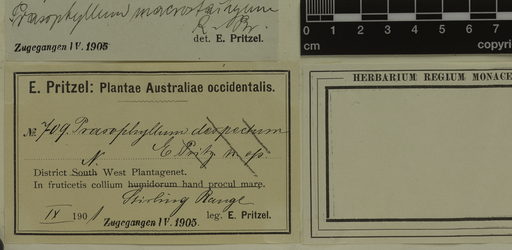 Prasophyllum macrostachyum
R. Br.
Zugegangen IV. 1905 det. E. Pritzel.
0 1 2 3 4 5 6 7
cm copyri
HERBARIUM REGIUM MONACE
E. Pritzel: Plantae Australiae occidentalis.
№ 709. Prasophyllum despectum
E. Pritz. n. sp.
N.
District South West Plantagenet.
In fruticetis collium humidorum haud procul mare.
Stirling Range
IX 1901 leg. E. Pritzel.
Zugegangen IV. 1905.